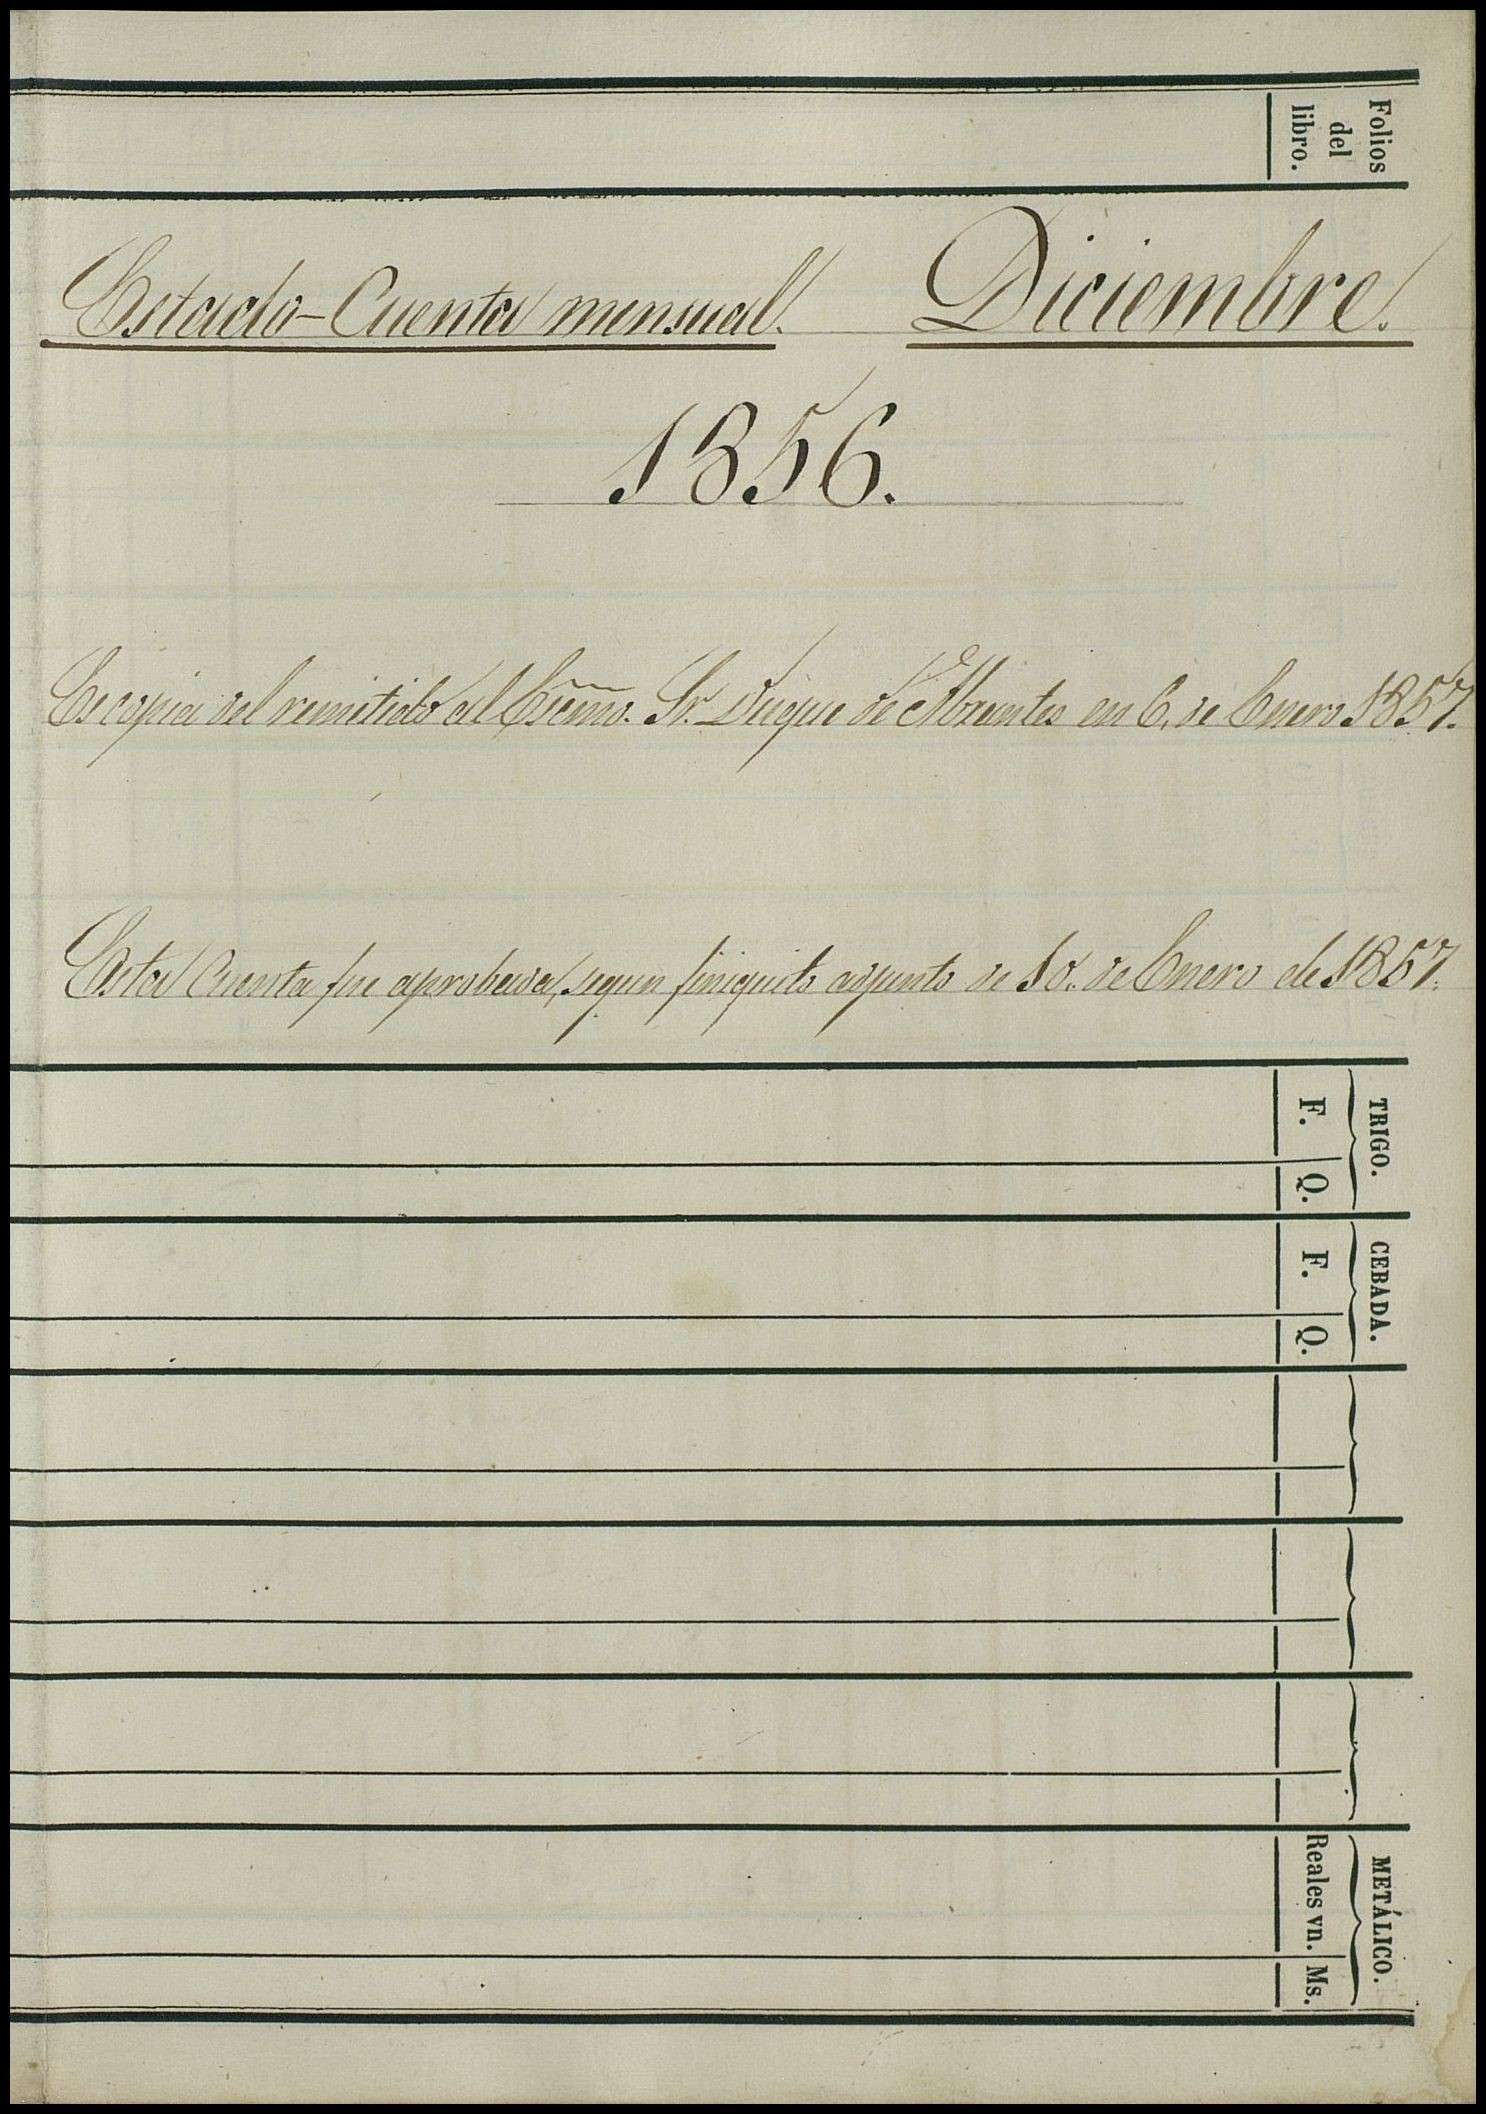 Folios
del
libro.
Estado-Cuenta mensual. Diciembre.
1856.
Es copia del remitido al Escmo. Sr. Duque de Abrantes en 6, de Enero 1857.
Esta Cuenta fue aprobada, segun finiquito adjunto de 10,, de Enero de 1857.
TRIGO.
F. Q.
CEBADA.
F. Q.
METÁLICO.
Reales vn. Ms.